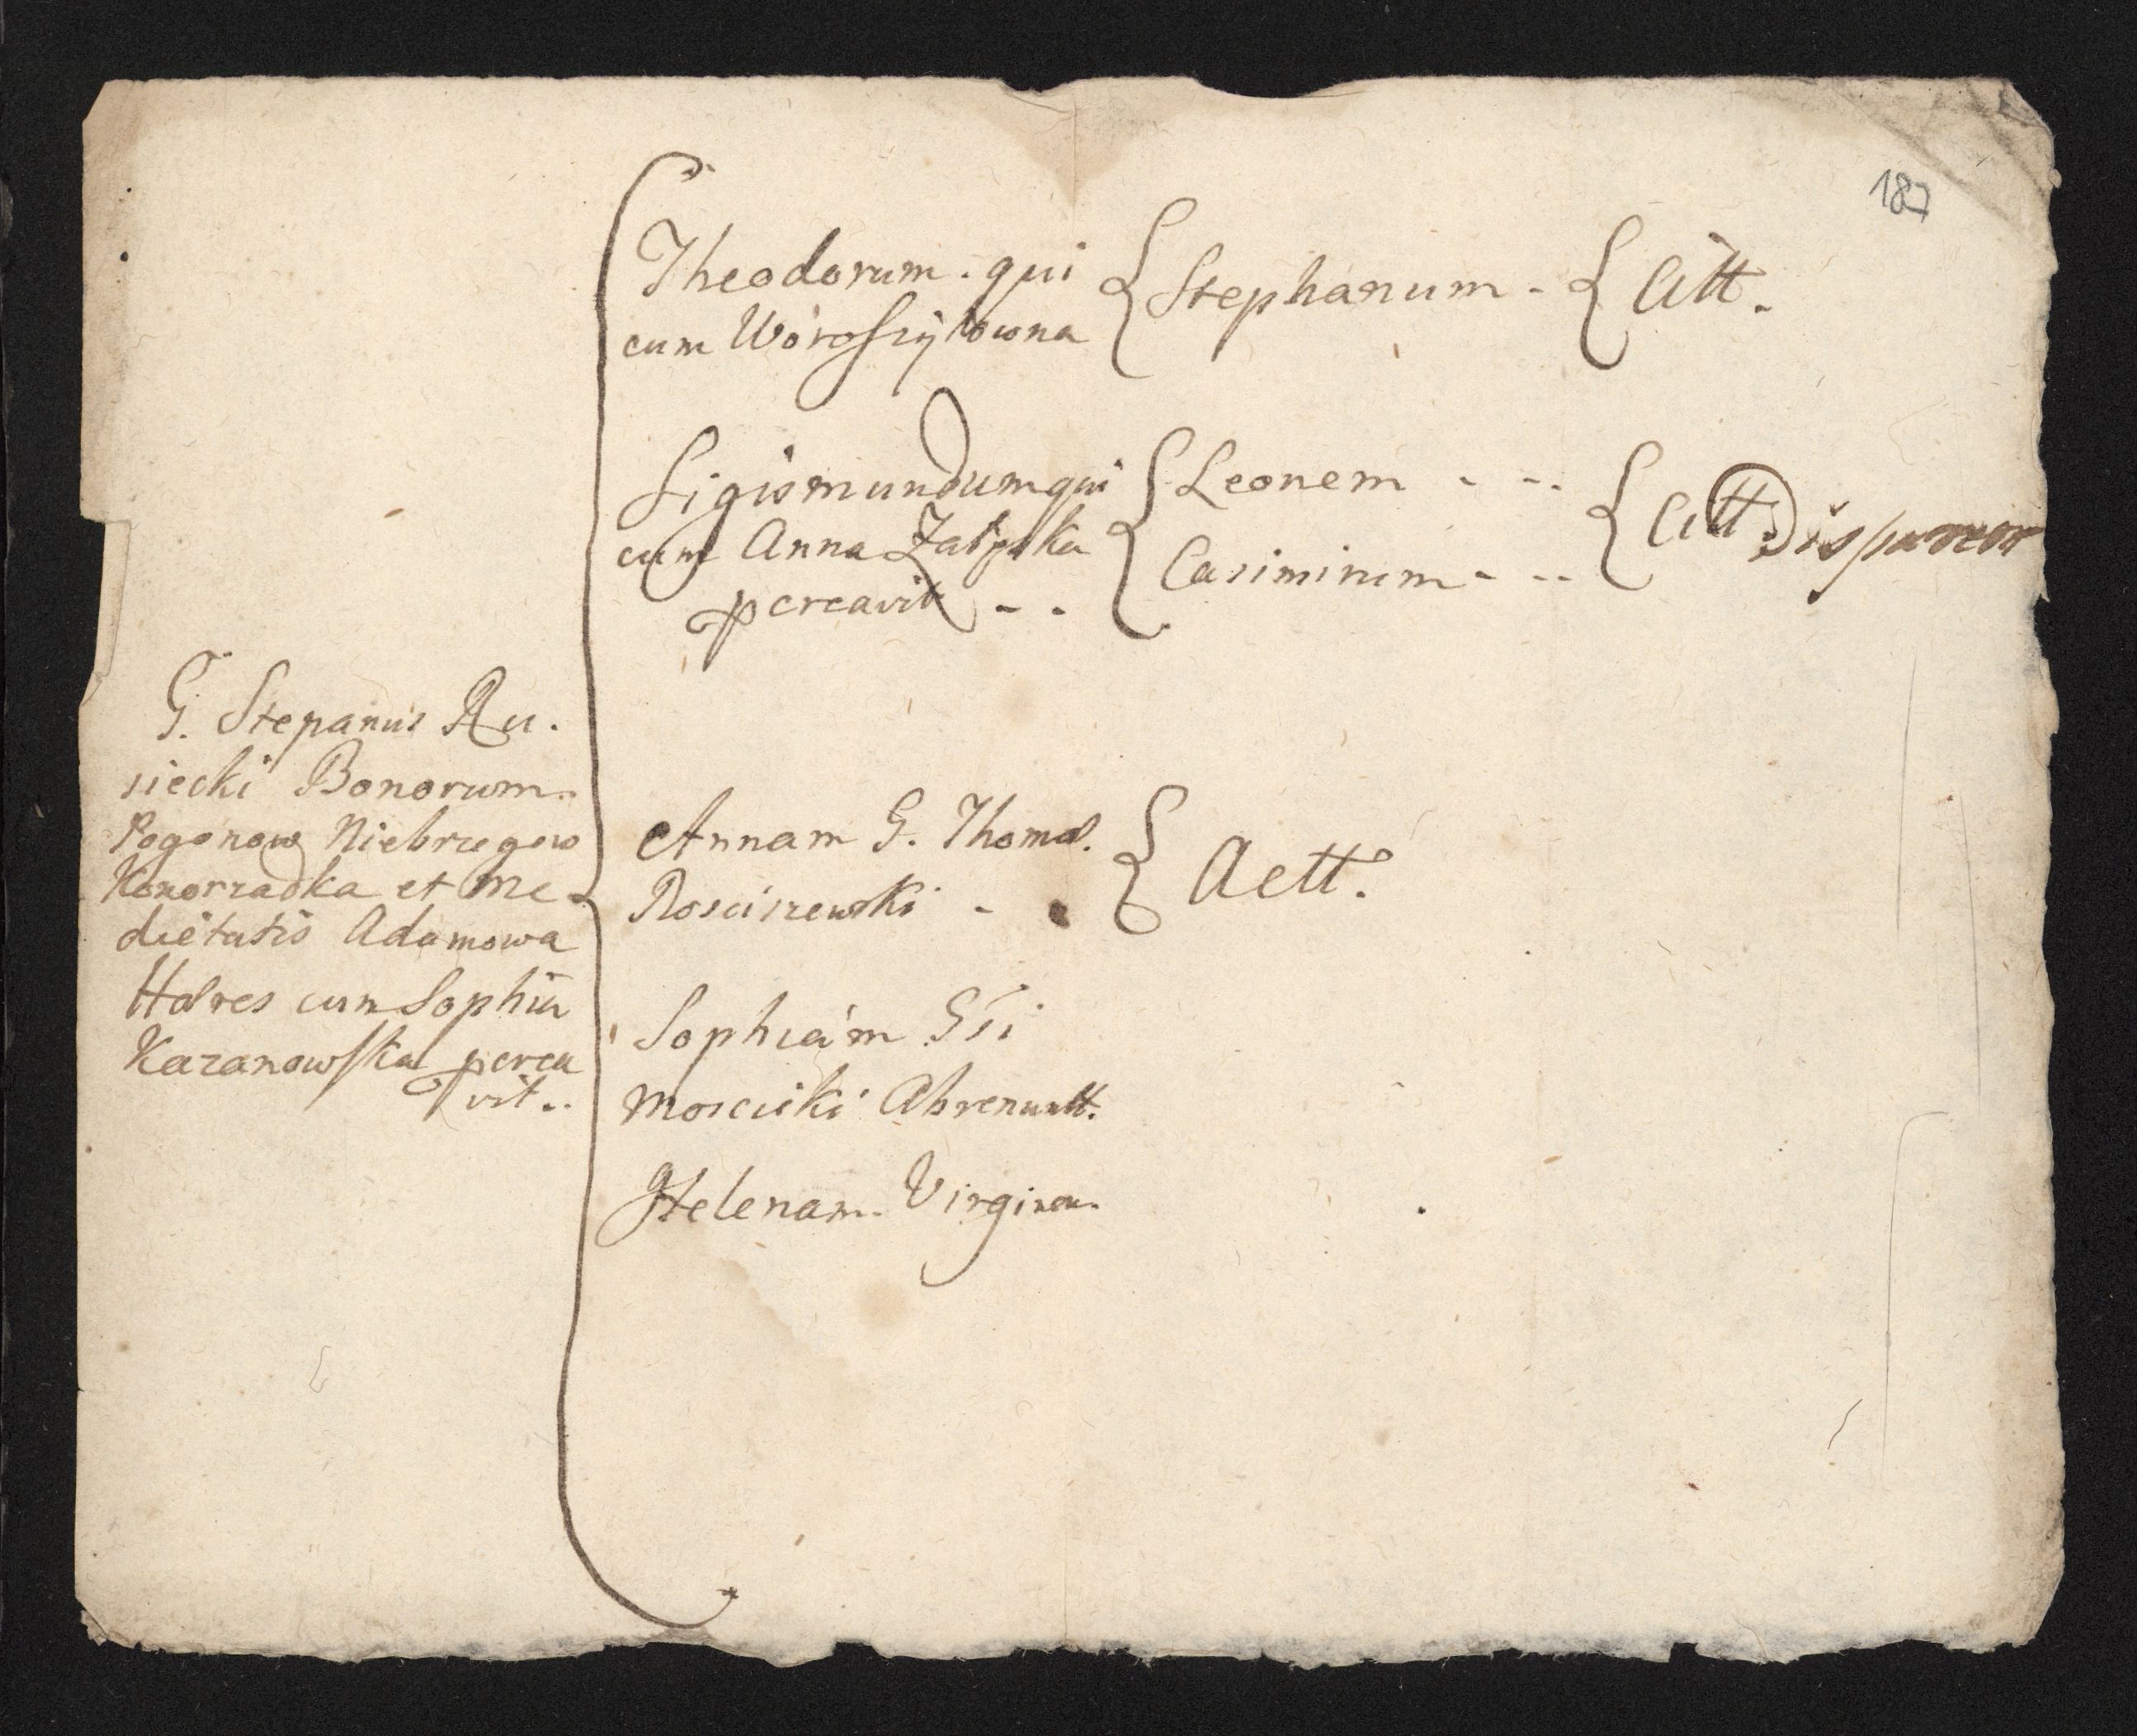 187
G. Stepanus Ru.
siecki Bonorum.
Pogonow Niebrzegow
Konorzadka et Me-
dietatis Adamowa
Hæres cum Sophia
Kazanowska pcrea
vit..
Theodorum. qui
cum Woroszyłowna
Stephanum -
Citt.
Sigismundum qui
cum Anna Załęska
pcreavit - -
Leonem - --
Casimirum - --
Citt.
Annam G. Thomæ.
Rosciszewski -
Actt.
Sophiam Gsi
Moscicki Abrenuntt.
Helenam. Virginem.